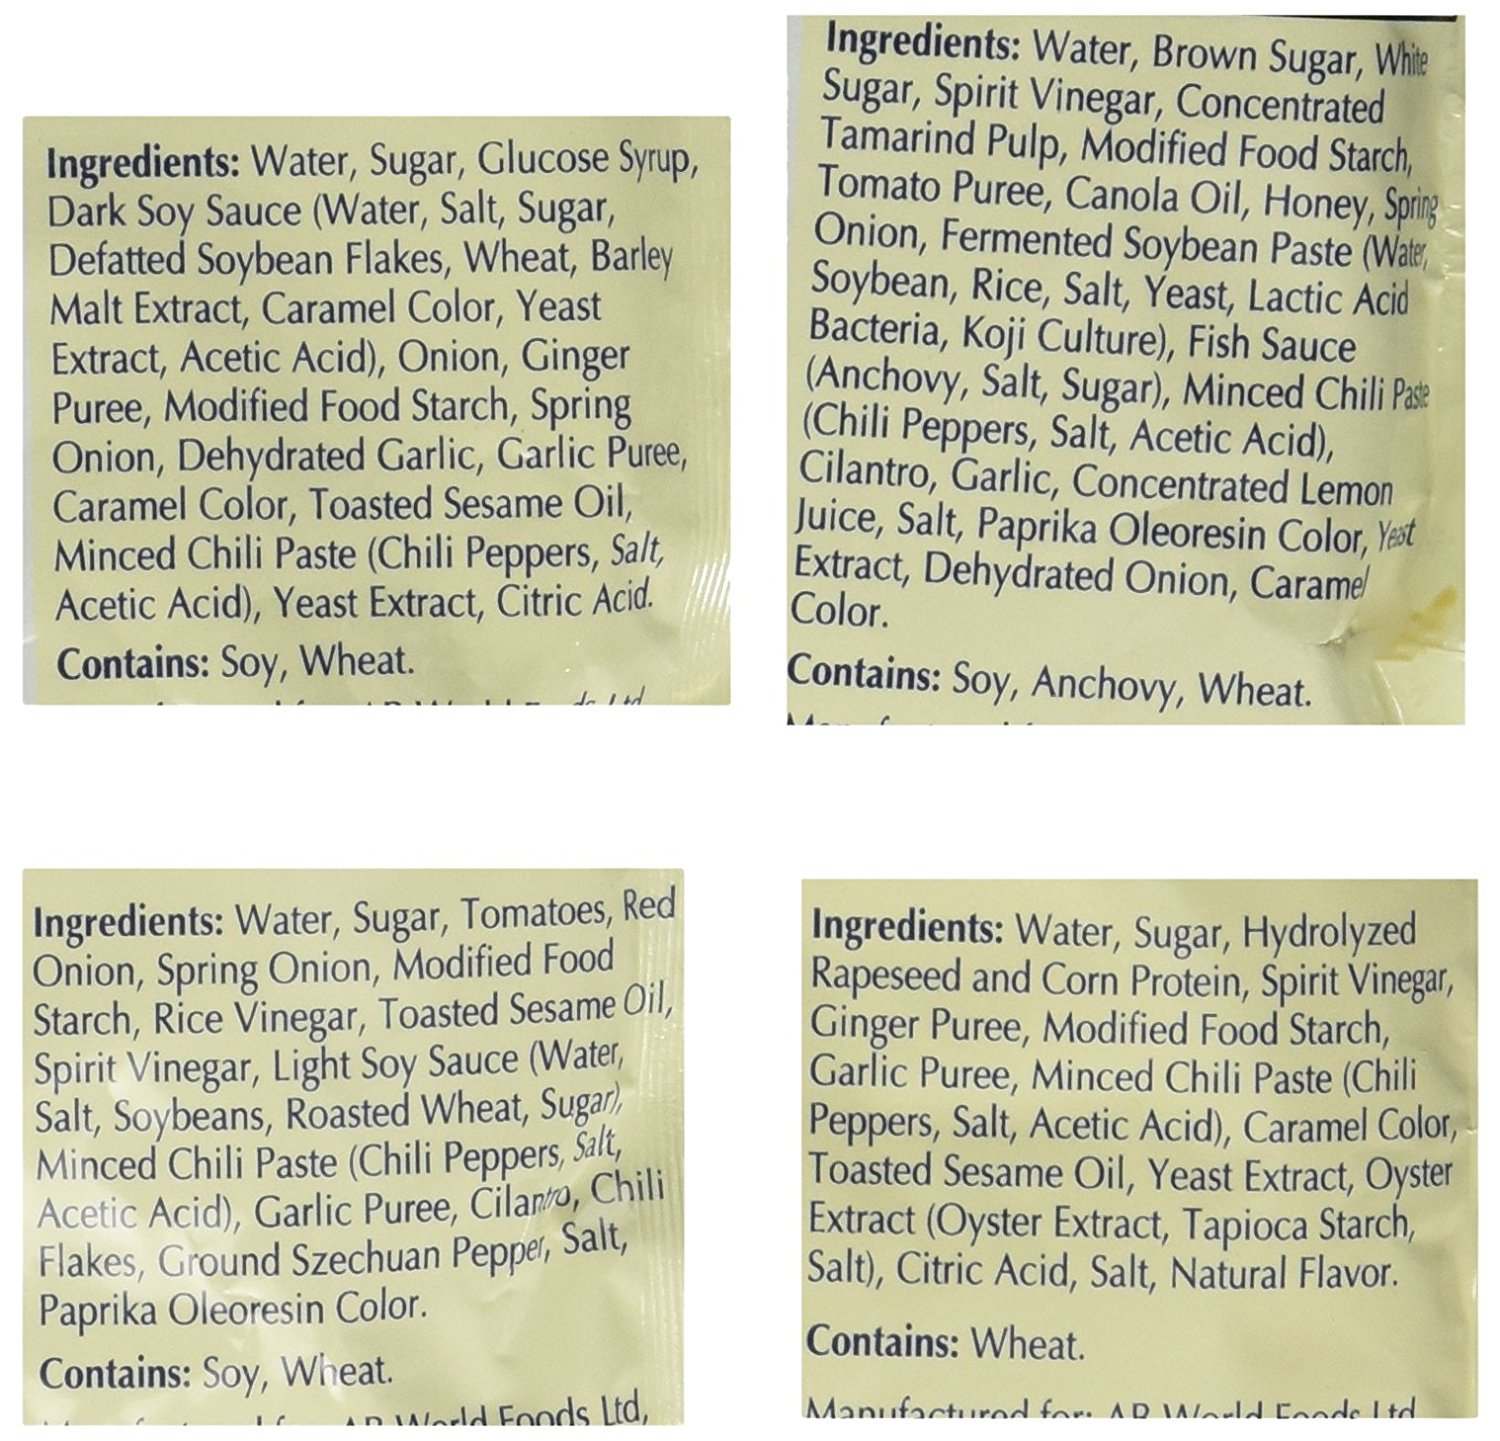 Ingredients: Water, Sugar, Glucose Syrup,
Dark Soy Sauce (Water, Salt, Sugar,
Defatted Soybean Flakes, Wheat, Barley
Malt Extract, Caramel Color, Yeast
Extract, Acetic Acid), Onion, Ginger
Puree, Modified Food Starch, Spring
Onion, Dehydrated Garlic, Garlic Puree,
Caramel Color, Toasted Sesame Oil,
Minced Chili Paste (Chili Peppers, Salt,
Acetic Acid), Yeast Extract, Citric Acid.
Contains: Soy, Wheat.
Ingredients: Water, Brown Sugar, White
Sugar, Spirit Vinegar, Concentrated
Tamarind Pulp, Modified Food Starch,
Tomato Puree, Canola Oil, Honey, Spring
Onion, Fermented Soybean Paste (Water,
Soybean, Rice, Salt, Yeast, Lactic Acid
Bacteria, Koji Culture), Fish Sauce
(Anchovy, Salt, Sugar), Minced Chili Paste
(Chili Peppers, Salt, Acetic Acid),
Cilantro, Garlic, Concentrated Lemon
Juice, Salt, Paprika Oleoresin Color, Yeast
Extract, Dehydrated Onion, Caramel
Color.
Contains: Soy, Anchovy, Wheat.
Ingredients: Water, Sugar, Tomatoes, Red
Onion, Spring Onion, Modified Food
Starch, Rice Vinegar, Toasted Sesame Oil,
Spirit Vinegar, Light Soy Sauce (Water,
Salt, Soybeans, Roasted Wheat, Sugar),
Minced Chili Paste (Chili Peppers, Salt,
Acetic Acid), Garlic Puree, Cilantro, Chili
Flakes, Ground Szechuan Pepper, Salt,
Paprika Oleoresin Color.
Contains: Soy, Wheat.
AB World Foods Ltd,
Ingredients: Water, Sugar, Hydrolyzed
Rapeseed and Corn Protein, Spirit Vinegar,
Ginger Puree, Modified Food Starch,
Garlic Puree, Minced Chili Paste (Chili
Peppers, Salt, Acetic Acid), Caramel Color,
Toasted Sesame Oil, Yeast Extract, Oyster
Extract (Oyster Extract, Tapioca Starch,
Salt), Citric Acid, Salt, Natural Flavor.
Contains: Wheat.
Manufactured for: AB World Foods Ltd